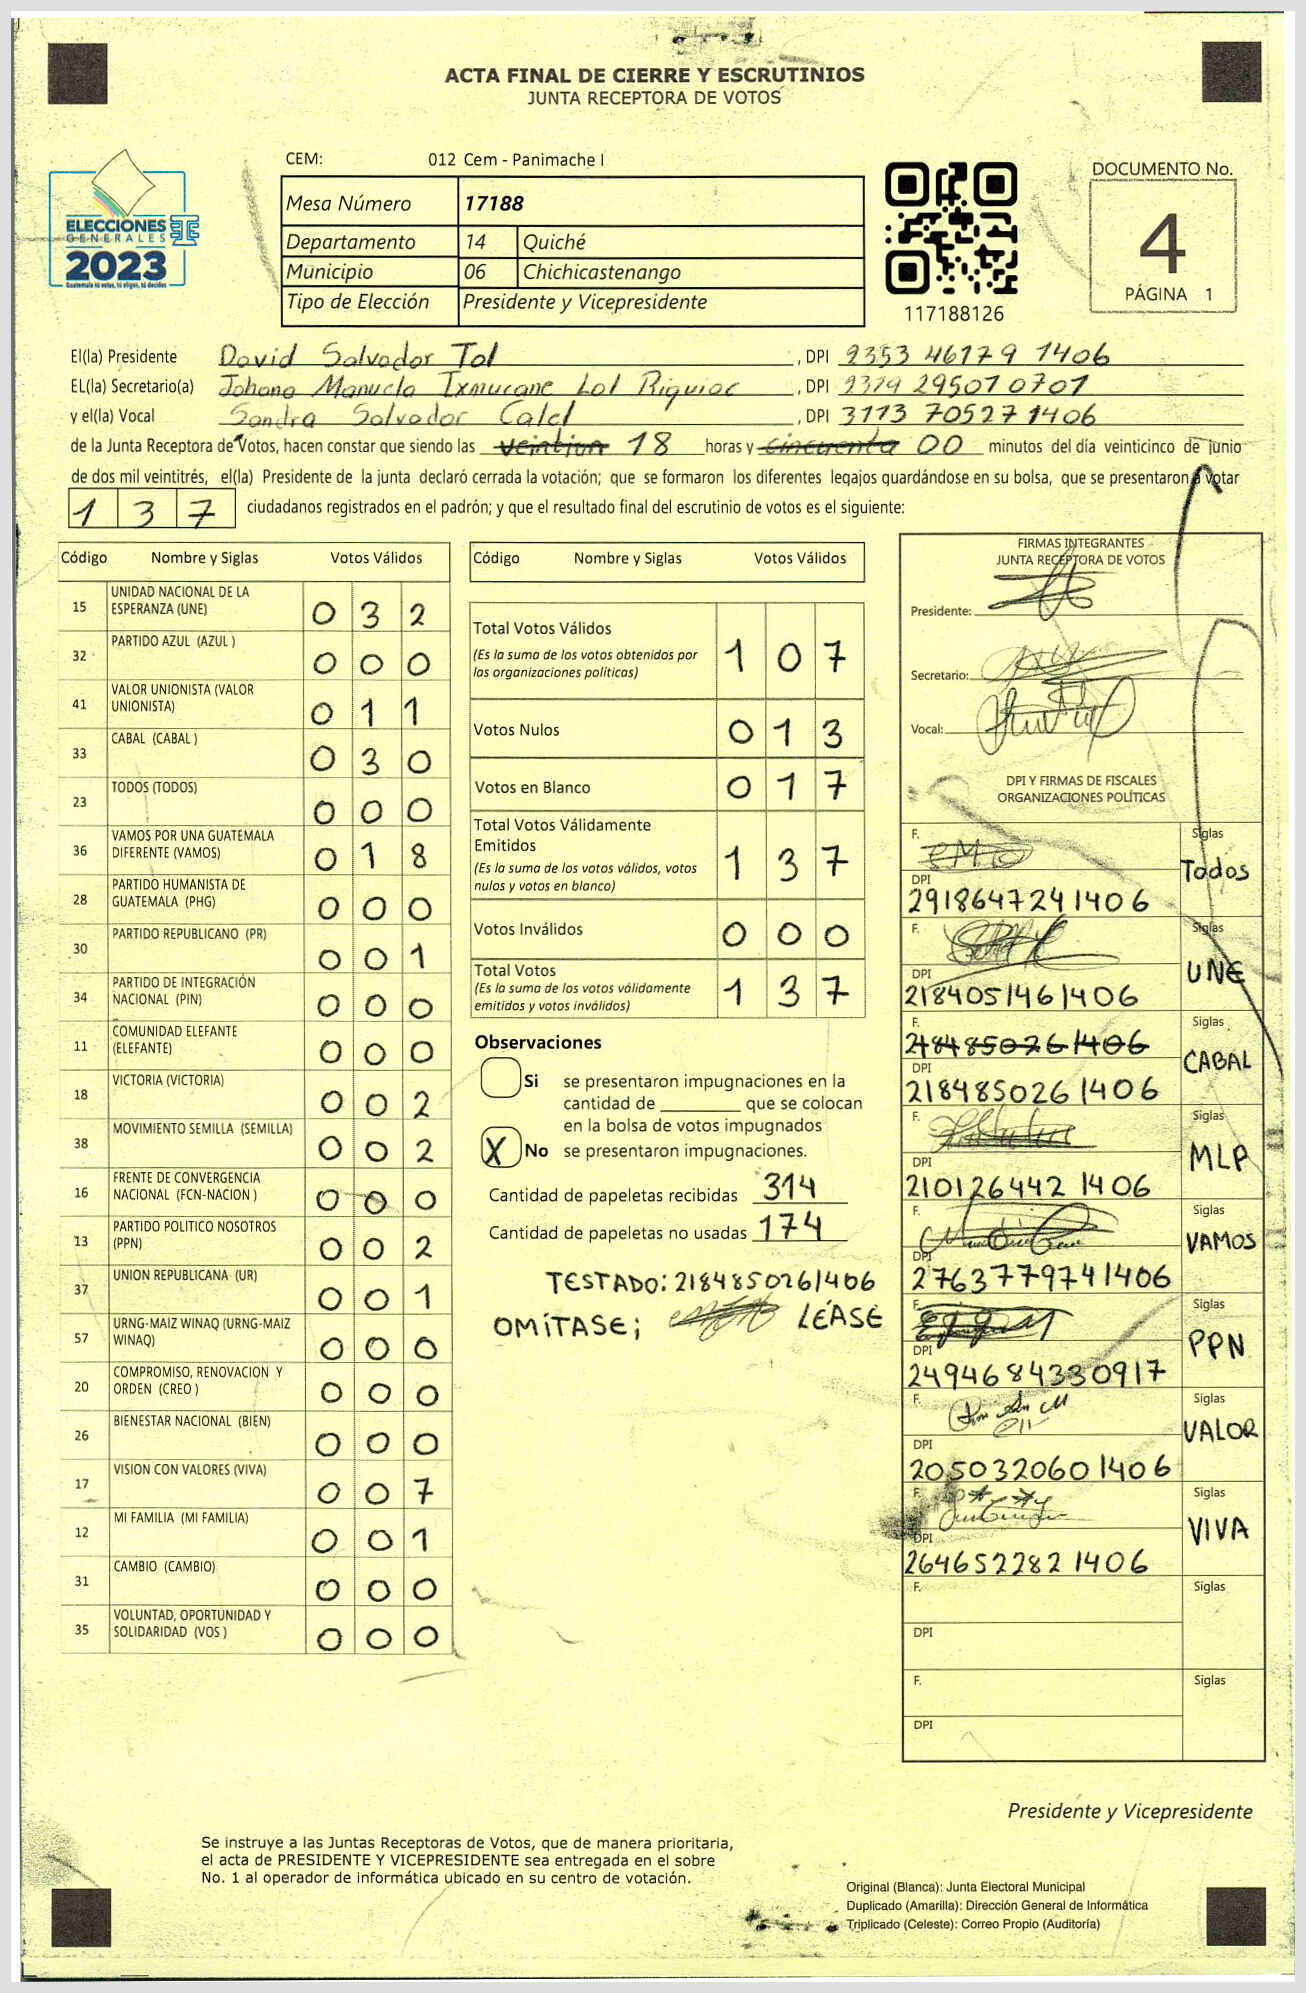 ACTA FINAL DE CIERRE Y ESCRUTINIOS
JUNTA RECEPTORA DE VOTOS
CEM: 012 Cem - Panimache I
ELECCIONES
GENERALES
2023
Guatemala tú votas, tú eliges, tú decides
Mesa Número 17188
Departamento 14 Quiché
Municipio 06 Chichicastenango
Tipo de Elección Presidente y Vicepresidente
117188126
DOCUMENTO No.
4
PÁGINA 1
El(la) Presidente David Salvador Tol , DPI 2353 46179 1406
EL(la) Secretario(a) Johana Manuela Ixmucane Lol Riquiac , DPI 2379 29501 0701
y el(la) Vocal Sandra Salvador Calel , DPI 3113 70527 1406
de la Junta Receptora de Votos, hacen constar que siendo las veintiun 18 horas y cincuenta 00 minutos del día veinticinco de junio
de dos mil veintitrés, el(la) Presidente de la junta declaró cerrada la votación; que se formaron los diferentes legajos guardándose en su bolsa, que se presentaron a votar
137 ciudadanos registrados en el padrón; y que el resultado final del escrutinio de votos es el siguiente:
Código Nombre y Siglas Votos Válidos
15 UNIDAD NACIONAL DE LA ESPERANZA (UNE) 0 3 2
32 PARTIDO AZUL (AZUL ) 0 0 0
41 VALOR UNIONISTA (VALOR UNIONISTA) 0 1 1
33 CABAL (CABAL ) 0 3 0
23 TODOS (TODOS) 0 0 0
36 VAMOS POR UNA GUATEMALA DIFERENTE (VAMOS) 0 1 8
28 PARTIDO HUMANISTA DE GUATEMALA (PHG) 0 0 0
30 PARTIDO REPUBLICANO (PR) 0 0 1
34 PARTIDO DE INTEGRACIÓN NACIONAL (PIN) 0 0 0
11 COMUNIDAD ELEFANTE (ELEFANTE) 0 0 0
18 VICTORIA (VICTORIA) 0 0 2
38 MOVIMIENTO SEMILLA (SEMILLA) 0 0 2
16 FRENTE DE CONVERGENCIA NACIONAL (FCN-NACION ) 0 0 0
13 PARTIDO POLITICO NOSOTROS (PPN) 0 0 2
37 UNION REPUBLICANA (UR) 0 0 1
57 URNG-MAIZ WINAQ (URNG-MAIZ WINAQ) 0 0 0
20 COMPROMISO, RENOVACION Y ORDEN (CREO ) 0 0 0
26 BIENESTAR NACIONAL (BIEN) 0 0 0
17 VISION CON VALORES (VIVA) 0 0 7
12 MI FAMILIA (MI FAMILIA) 0 0 1
31 CAMBIO (CAMBIO) 0 0 0
35 VOLUNTAD, OPORTUNIDAD Y SOLIDARIDAD (VOS ) 0 0 0
Código Nombre y Siglas Votos Válidos
Total Votos Válidos 1 0 7
(Es la suma de los votos obtenidos por
las organizaciones políticas)
Votos Nulos 0 1 3
Votos en Blanco 0 1 7
Total Votos Válidamente
Emitidos 1 3 7
(Es la suma de los votos válidos, votos
nulos y votos en blanco)
Votos Inválidos 0 0 0
Total Votos 1 3 7
(Es la suma de los votos válidamente
emitidos y votos inválidos)
Observaciones
Si se presentaron impugnaciones en la
cantidad de ________ que se colocan
en la bolsa de votos impugnados
X No se presentaron impugnaciones.
Cantidad de papeletas recibidas 314
Cantidad de papeletas no usadas 174
TESTADO: 2184850261406
OMÍTASE; LÉASE
FIRMAS INTEGRANTES
JUNTA RECEPTORA DE VOTOS
Presidente:
Secretario:
Vocal:
DPI Y FIRMAS DE FISCALES
ORGANIZACIONES POLÍTICAS
F. Siglas
Todos
DPI
291864724 1406
F. Siglas
UNE
DPI
218405146 1406
F. Siglas
218485026 1406
CABAL
DPI
218485026 1406
F. Siglas
MLP
DPI
210126442 1406
F. Siglas
VAMOS
DPI
276377974 1406
F. Siglas
PPN
DPI
249468433 0917
F. Siglas
VALOR
DPI
205032060 1406
F. Siglas
VIVA
DPI
264652282 1406
F. Siglas
DPI
F. Siglas
DPI
Presidente y Vicepresidente
Se instruye a las Juntas Receptoras de Votos, que de manera prioritaria,
el acta de PRESIDENTE Y VICEPRESIDENTE sea entregada en el sobre
No. 1 al operador de informática ubicado en su centro de votación.
Original (Blanca): Junta Electoral Municipal
Duplicado (Amarilla): Dirección General de Informática
Triplicado (Celeste): Correo Propio (Auditoría)